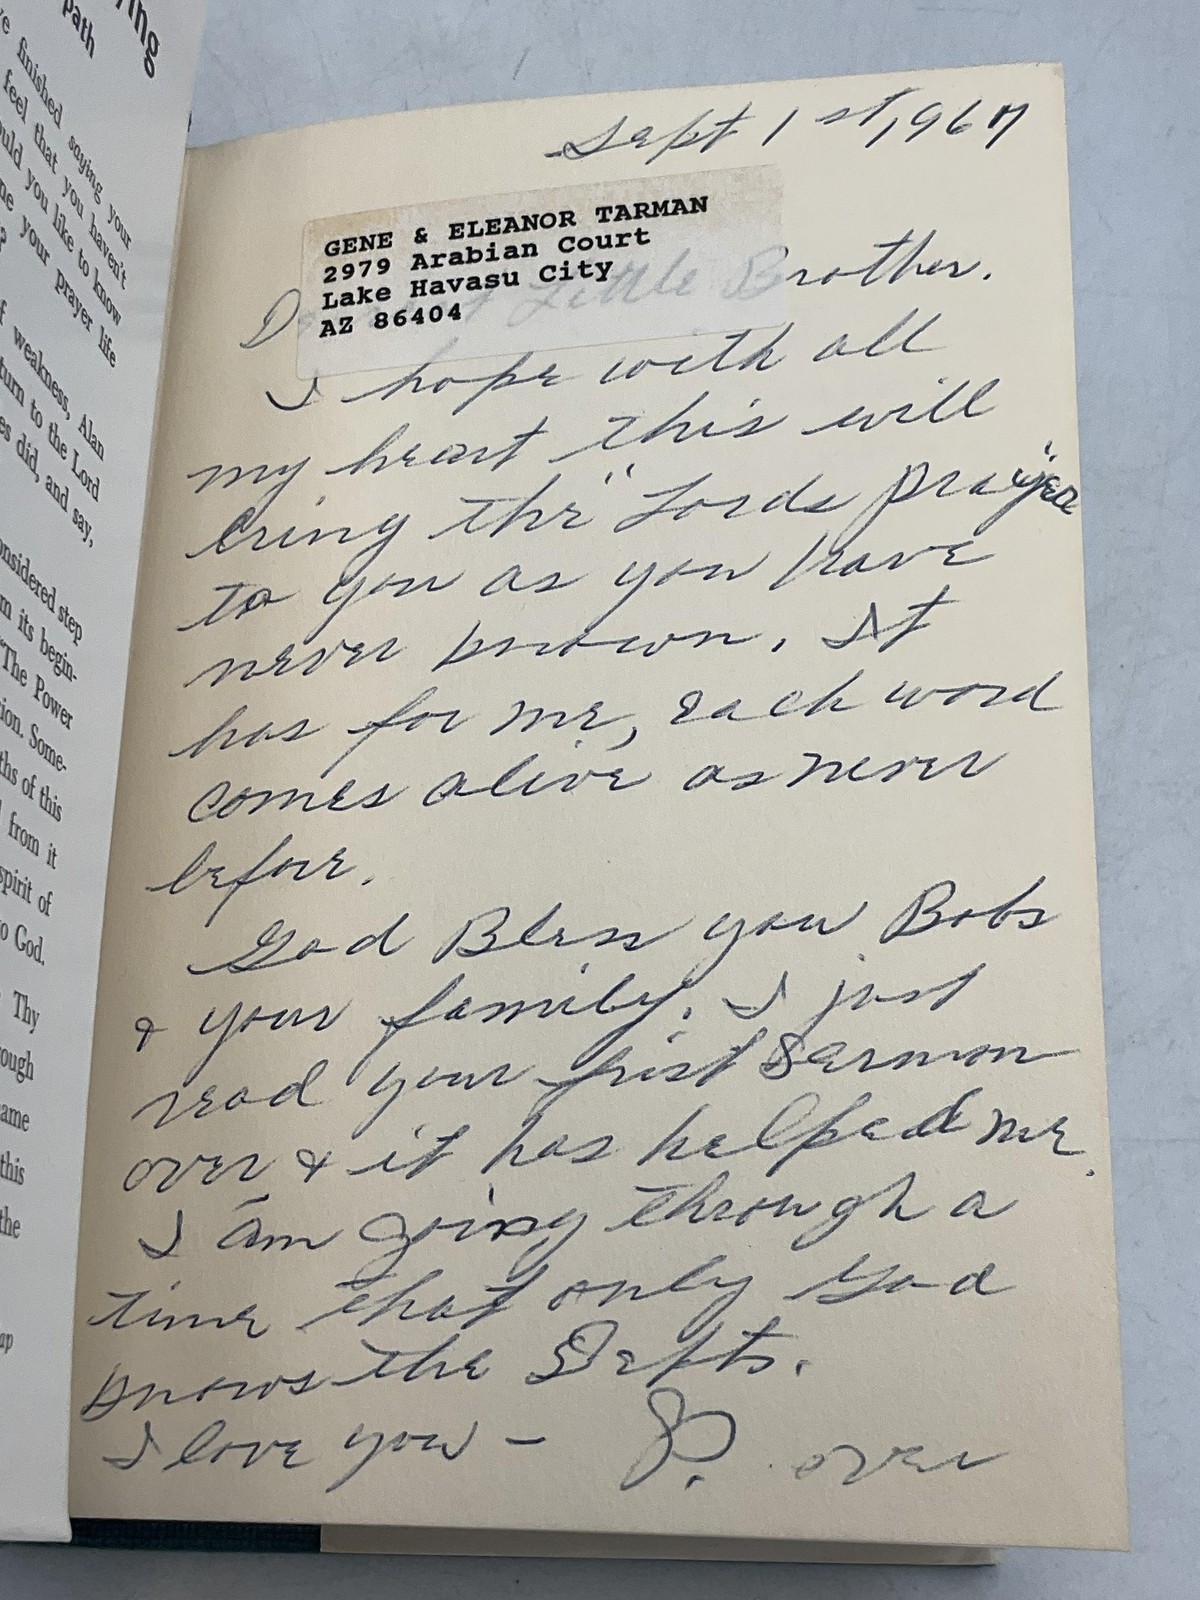 ying
path
ve finished saying your
feel that you haven't
ould you like to know
ne your prayer life
?
f weakness, Alan
turn to the Lord
es did, and say,
onsidered step
m its begin-
"The Power
tion. Some-
ths of this
from it
spirit of
o God.
Thy
ough
ame
this
the
ap
Sept 1st, 1967
GENE & ELEANOR TARMAN
2979 Arabian Court
Lake Havasu City
AZ 86404
Little Brother.
I hope with all
my heart this will
bring the "Lords prayer"
to you as you have
never known. It
has for me, each word
comes alive as never
before.
God Bless you Bobs
& your family. I just
read your first Sermon
over & it has helped me.
I am going through a
time that only God
knows the Depts.
I love you –
over